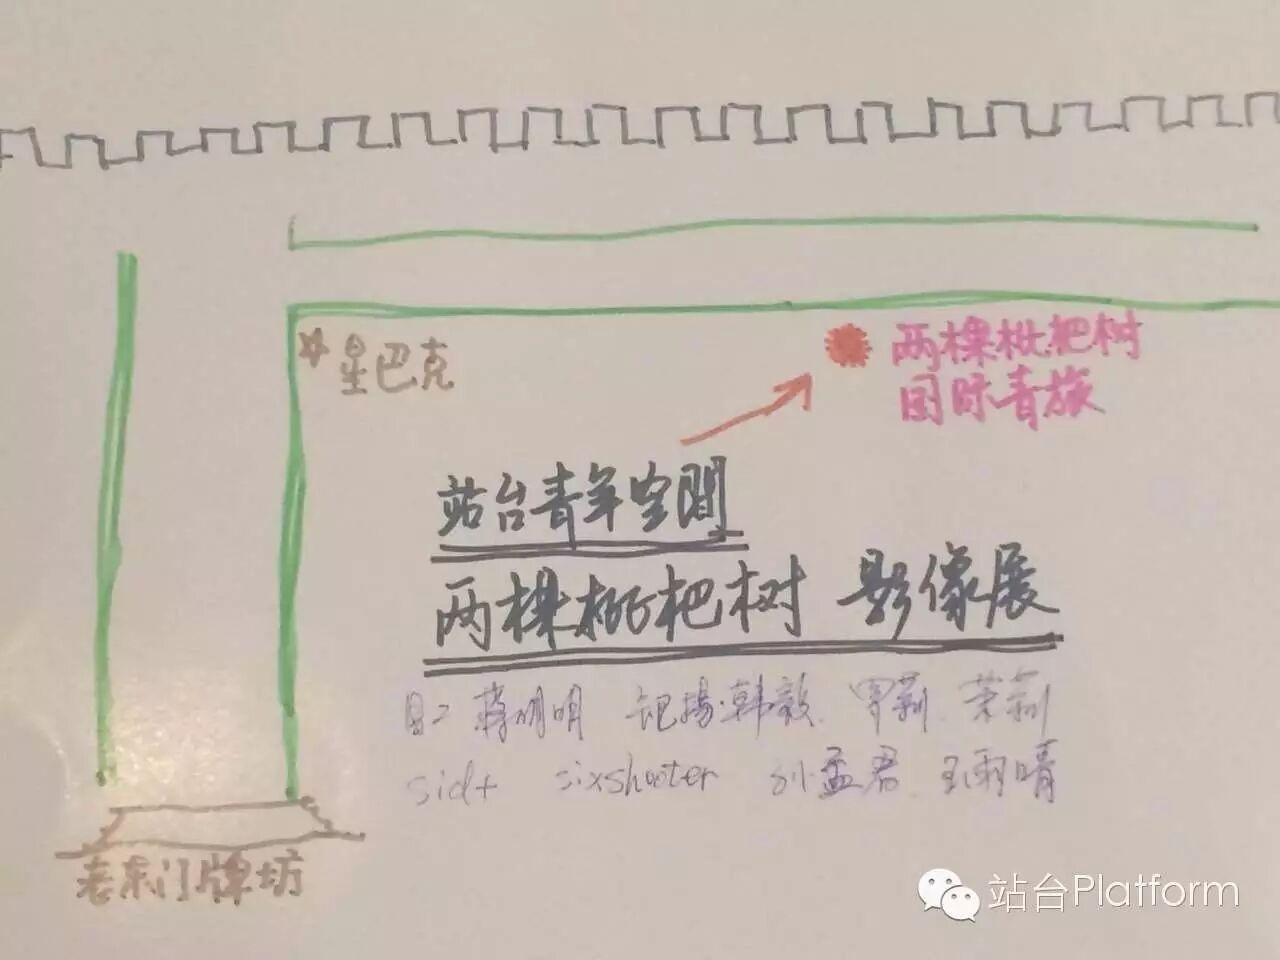 星巴克
两棵枇杷树
国际青旅
站台青年空間
两棵枇杷树 影像展
蒋明明 韩毅 罗莉 茉莉
sid+ sixshooter 孙孟君 王雨晴
老东门牌坊
站台Platform